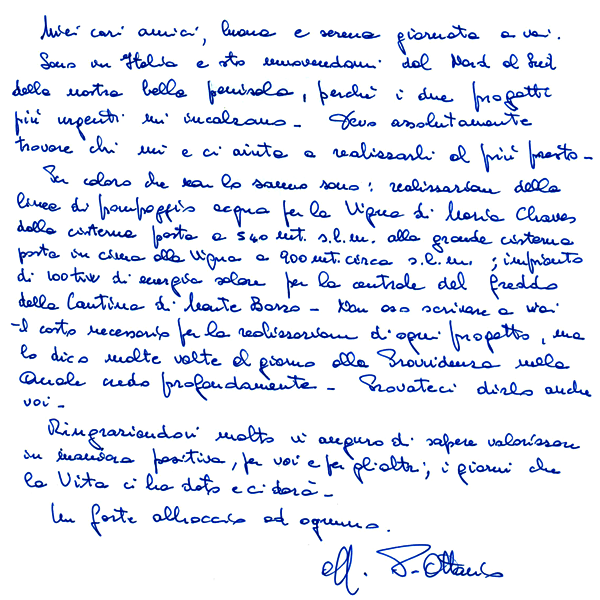 Miei cari amici, buona e serena giornata a voi.
Sono in Italia e sto muovendomi dal Nord al Sud
della nostra bella penisola, perché i due progetti
più urgenti mi incalzano - Devo assolutamente
trovare chi mi e ci aiuta a realizzarli al più presto -
Per coloro che non lo sanno sono: realizzazione della
linea di pompaggio acqua per la Vigna di Maria Chaves
dalla cisterna posta a 540 mt. s.l.m. alla grande cisterna
posta in cima alla Vigna a 900 mt. circa s.l.m.; impianto
di 100 kW di energia solare per la centrale del freddo
della Cantina di Monte Barro - Non oso scrivere a voi
il costo necessario per la realizzazione di ogni progetto, ma
lo dico molte volte al giorno alla Provvidenza nella
Quale credo profondamente - Provateci dirlo anche
voi -
Ringraziandovi molto vi auguro di sapere valorizzare
in maniera positiva, per voi e per gli altri, i giorni che
la Vita ci ha dato e ci darà -
Un forte abbraccio ad ognuno.
P. Ottavio